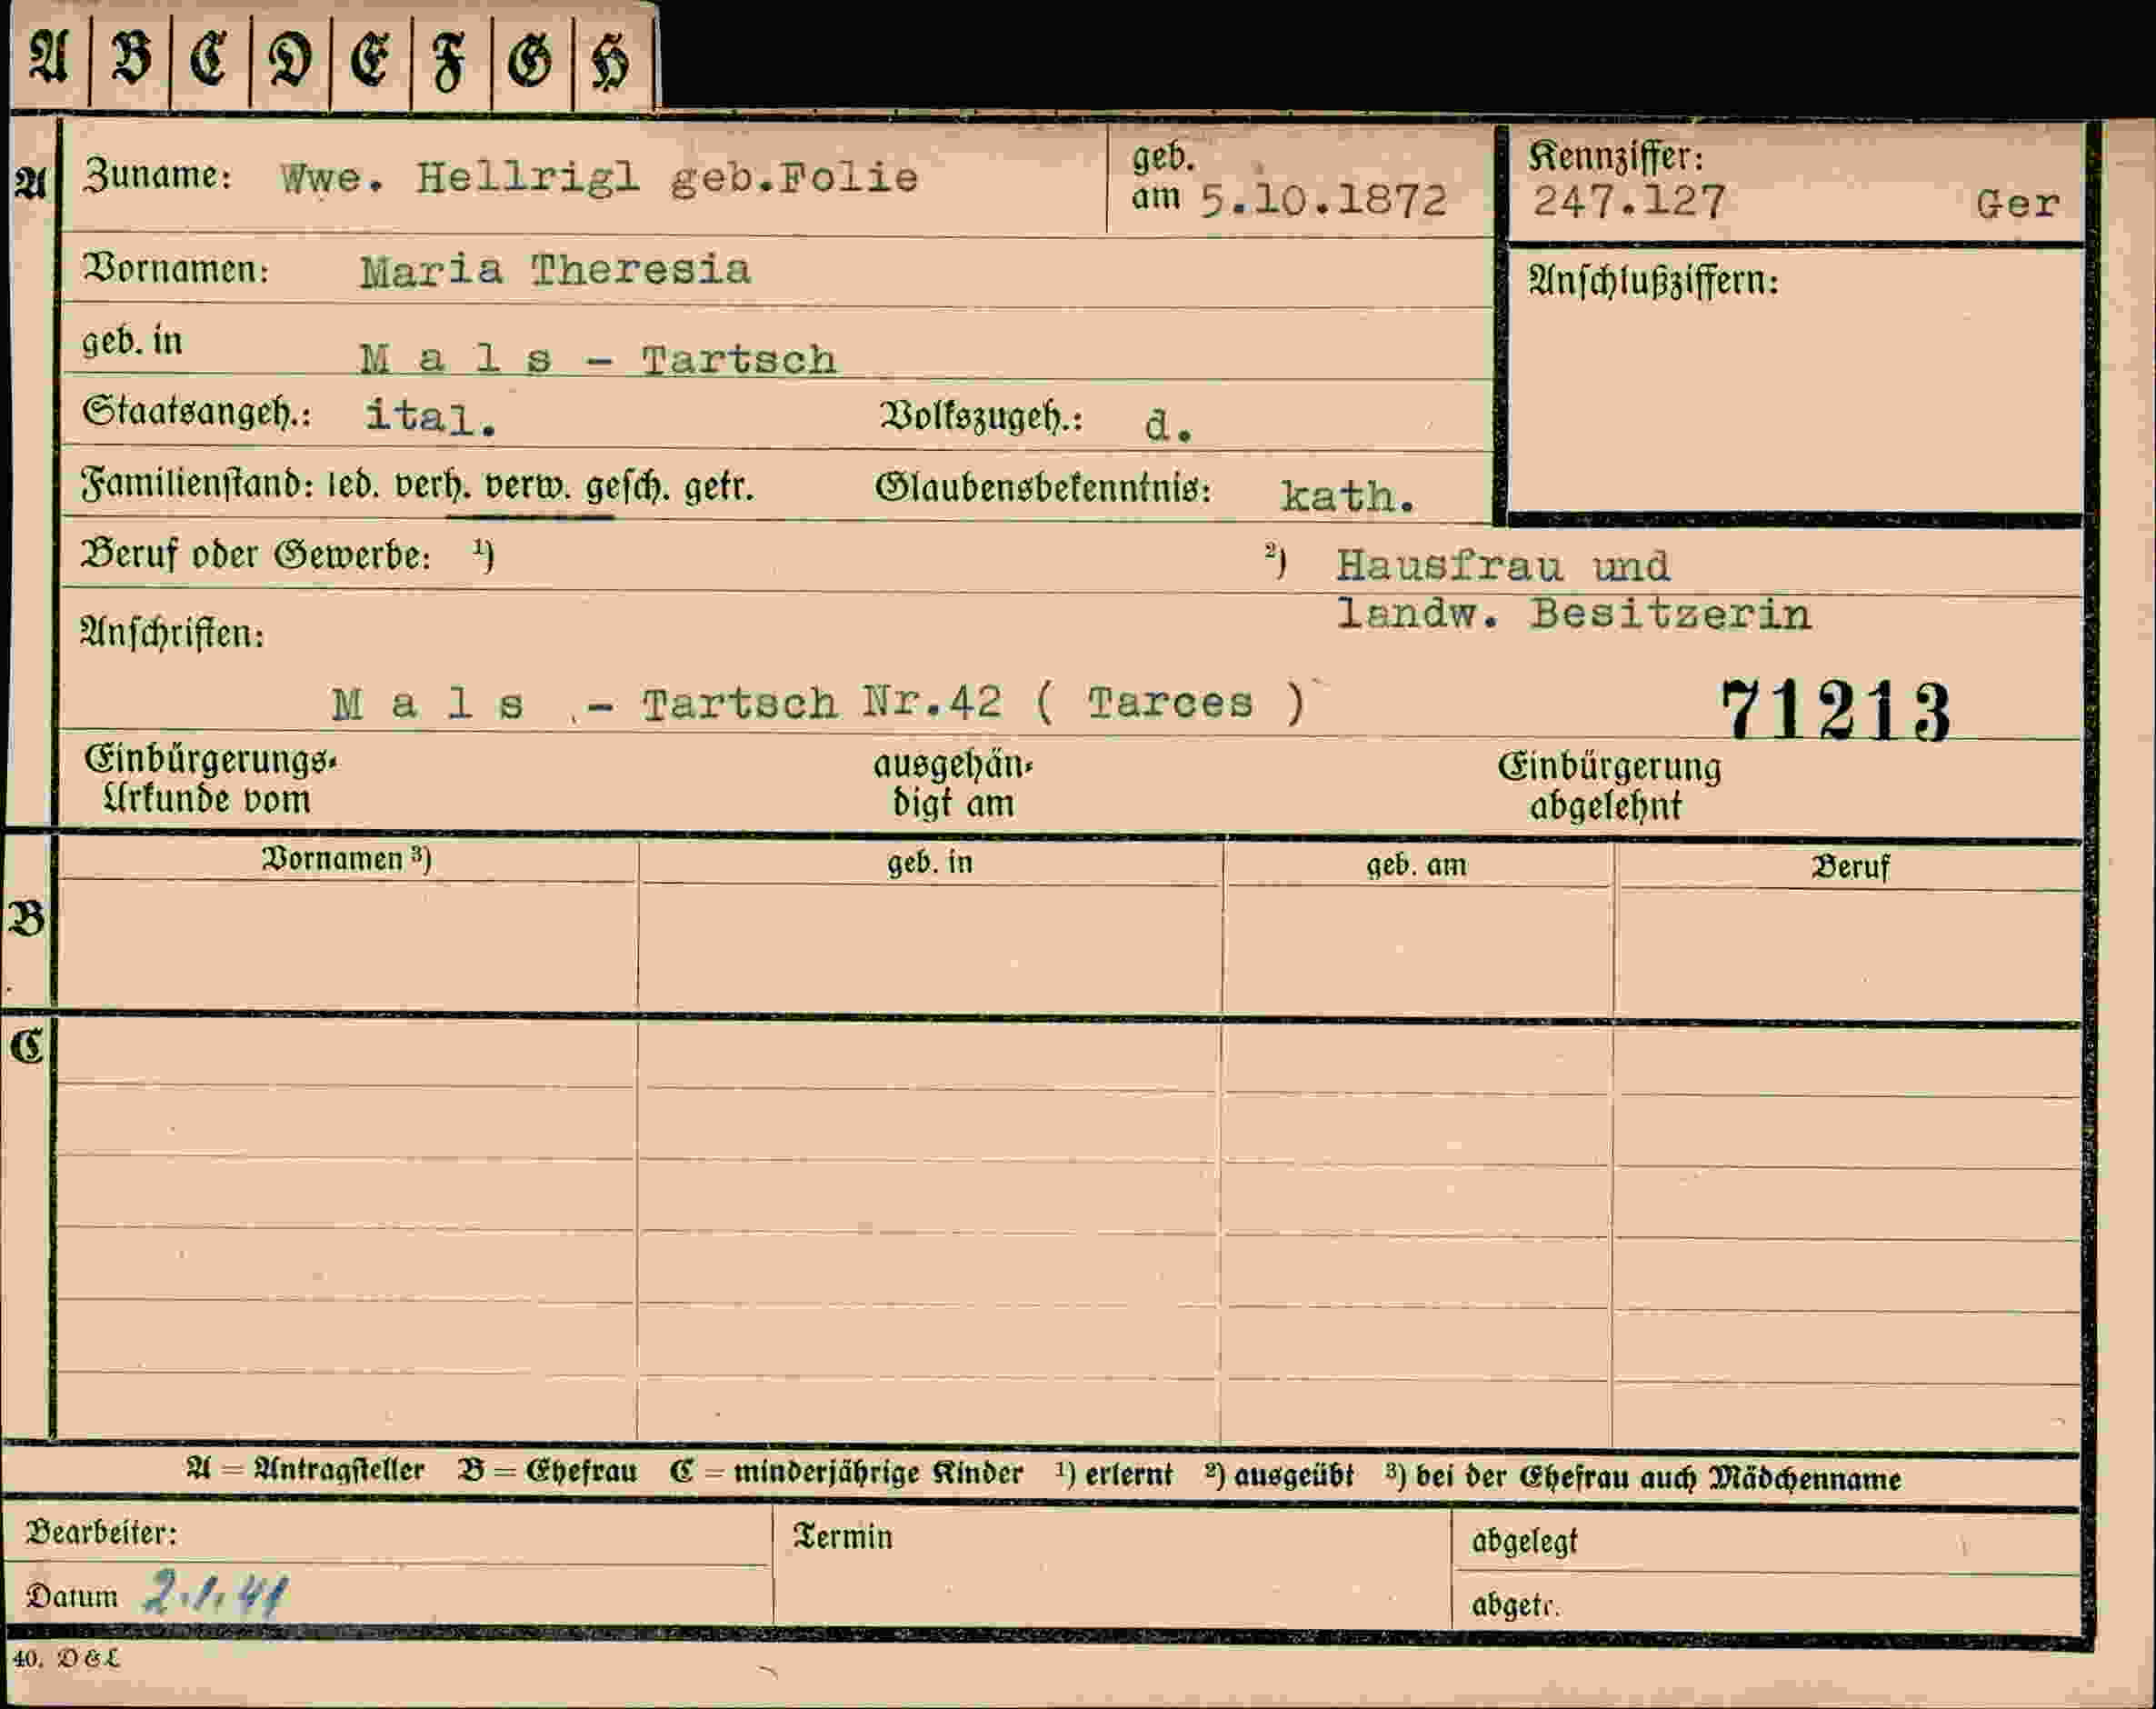 A B C D E F G H
A Zuname: Wwe. Hellrigl geb.Folie
geb.
am 5.10.1872
Kennziffer:
247.127 Ger
Vornamen: Maria Theresia
Anschlußziffern:
geb. in M a l s - Tartsch
Staatsangeh.: ital. Volkszugeh.: d.
Familienstand: led. verh. verw. gesch. getr. Glaubensbekenntnis: kath.
Beruf oder Gewerbe: ¹) ²) Hausfrau und
landw. Besitzerin
Anschriften:
M a l s - Tartsch Nr.42 ( Tarces )
71213
Einbürgerungs-
Urkunde vom
ausgehän-
digt am
Einbürgerung
abgelehnt
Vornamen ³) geb. in geb. am Beruf
B
C
A = Antragsteller B = Ehefrau C = minderjährige Kinder ¹) erlernt ²) ausgeübt ³) bei der Ehefrau auch Mädchenname
Bearbeiter: Termin abgelegt
Datum 2.1.41 abgetr.
40. D & L